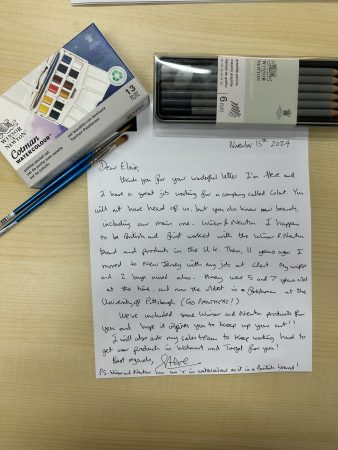 13
WINSOR
& NEWTON
Cotman
WATERCOLOUR
WINSOR
& NEWTON
graphite pencils
6
November 15th 2024
Dear
Thank you for your wonderful letter. I'm Steve and
I have a great job working for a company called Colart. You
will not have heard of us, but you do know our brands,
including our main one - Winsor & Newton. I happen
to be British and first worked with the Winsor & Newton
brand and products in the U.K. Then, 11 years ago I
moved to New Jersey with my job at Colart. My wife
and 2 boys moved also - they were 5 and 7 years old
at the time, and now the oldest is a freshman at the
University of Pittsburgh (GO PANTHERS!)
We've included some Winsor and Newton products for
you and hope it inspires you to keep up your art!!
I will also ask my sales team to keep working hard to
get our products in Walmart and Target for you!
Best regards, Steve
P.S. Winsor and Newton has an 'u' in watercolour as it is a British brand!